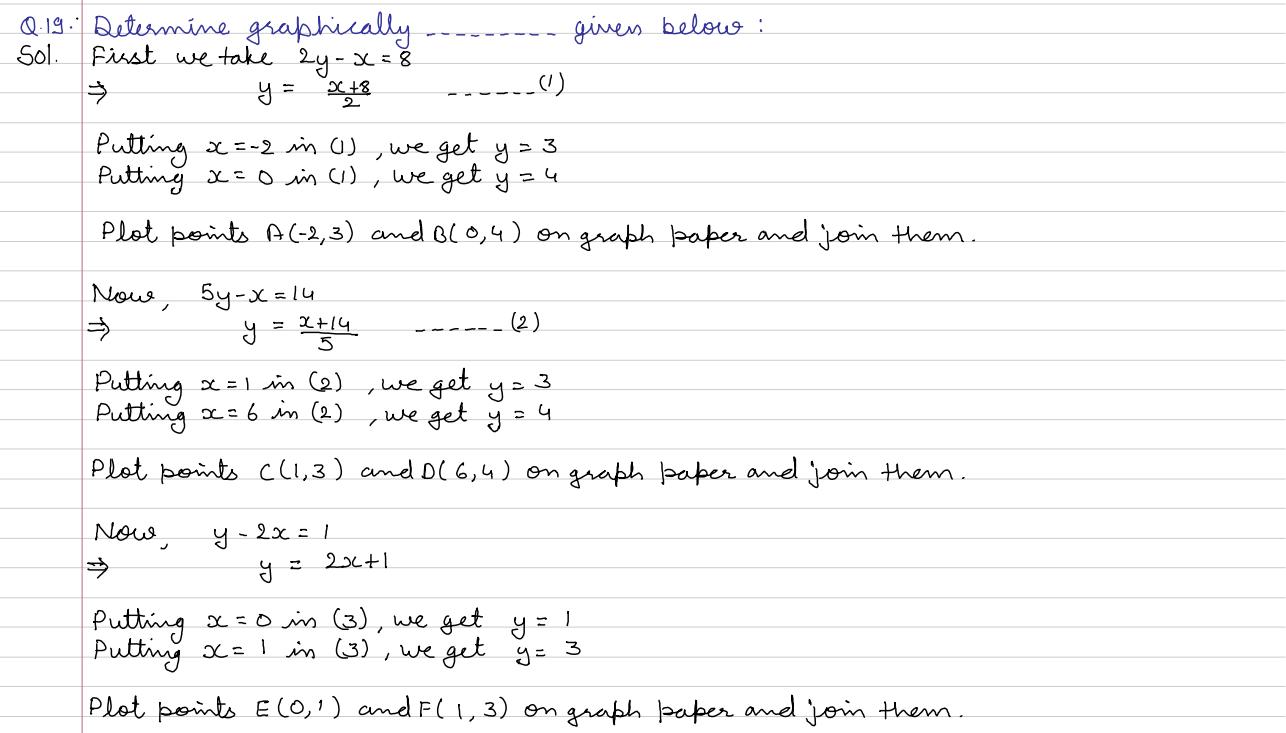 Q.19:  Determine graphically --------- given below :
Sol.  First we take  2y - x = 8
⇒  y = (x+8)/2  ------(1)
Putting x = -2 in (1) , we get y = 3
Putting x = 0 in (1) , we get y = 4
Plot points A(-2,3) and B(0,4) on graph paper and join them.
Now,  5y - x = 14
⇒  y = (x+14)/5  ------(2)
Putting x = 1 in (2) , we get y = 3
Putting x = 6 in (2) , we get y = 4
Plot points C(1,3) and D(6,4) on graph paper and join them.
Now,  y - 2x = 1
⇒  y = 2x+1
Putting x = 0 in (3), we get y = 1
Putting x = 1 in (3), we get y = 3
Plot points E(0,1) and F(1,3) on graph paper and join them.